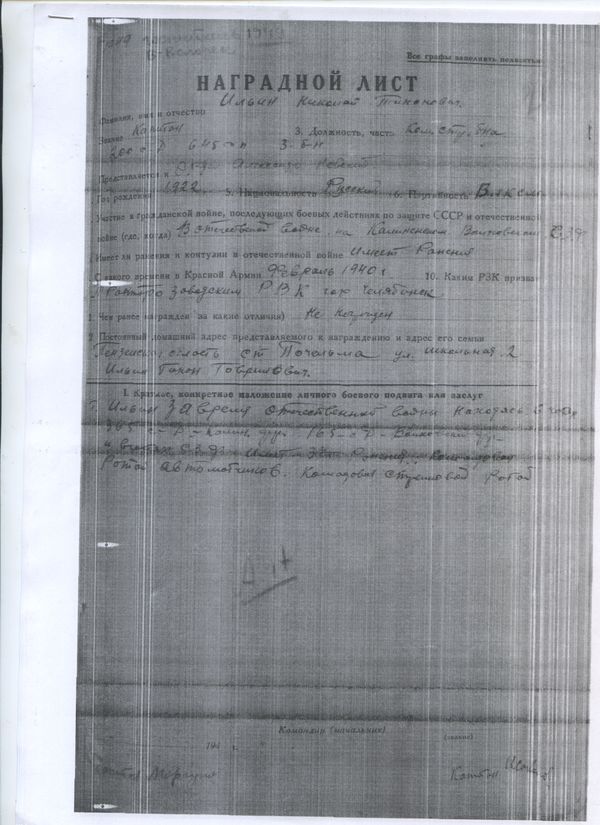 Все графы заполнять полностью
НАГРАДНОЙ ЛИСТ
Ильин Николай Тихонович
Фамилия, имя и отчество
Звание Капитан 3. Должность, часть Ком. стр. б-на
200 с-д 645 с-п 3. б-н
Представляется к Орд. Александр Невский
Год рождения 1922. 5. Национальность Русский 6. Партийность ВЛКСМ
Участие в гражданской войне, последующих боевых действиях по защите СССР и отечественной
войне (где, когда) В отечественной войне, на Калининском Волховском С.З.Ф
Имеет ли ранения и контузии в отечественной войне Имеет Ранения
С какого времени в Красной Армии Февраль 1940 г. 10. Каким РВК призван
Тракторозаводским РВК гор Челябинск
1. Чем ранее награжден за какие отличия) Не награжден
2. Постоянный домашний адрес представляемого к награждению и адрес его семьи
Пензенская область ст Пачельма ул. Школьная 2
Ильин Тихон Гаврилович.
I. Краткое, конкретное изложение личного боевого подвига или заслуг
Т. Ильин За время отечественной войны находясь в
с-д - Калин. 165-с-д - Волховский
Имеет Ранения. Командовал
Ротой автоматчиков. Командовал стрелковой ротой
Командир (начальник)
(звание)
194 г.
Капитан